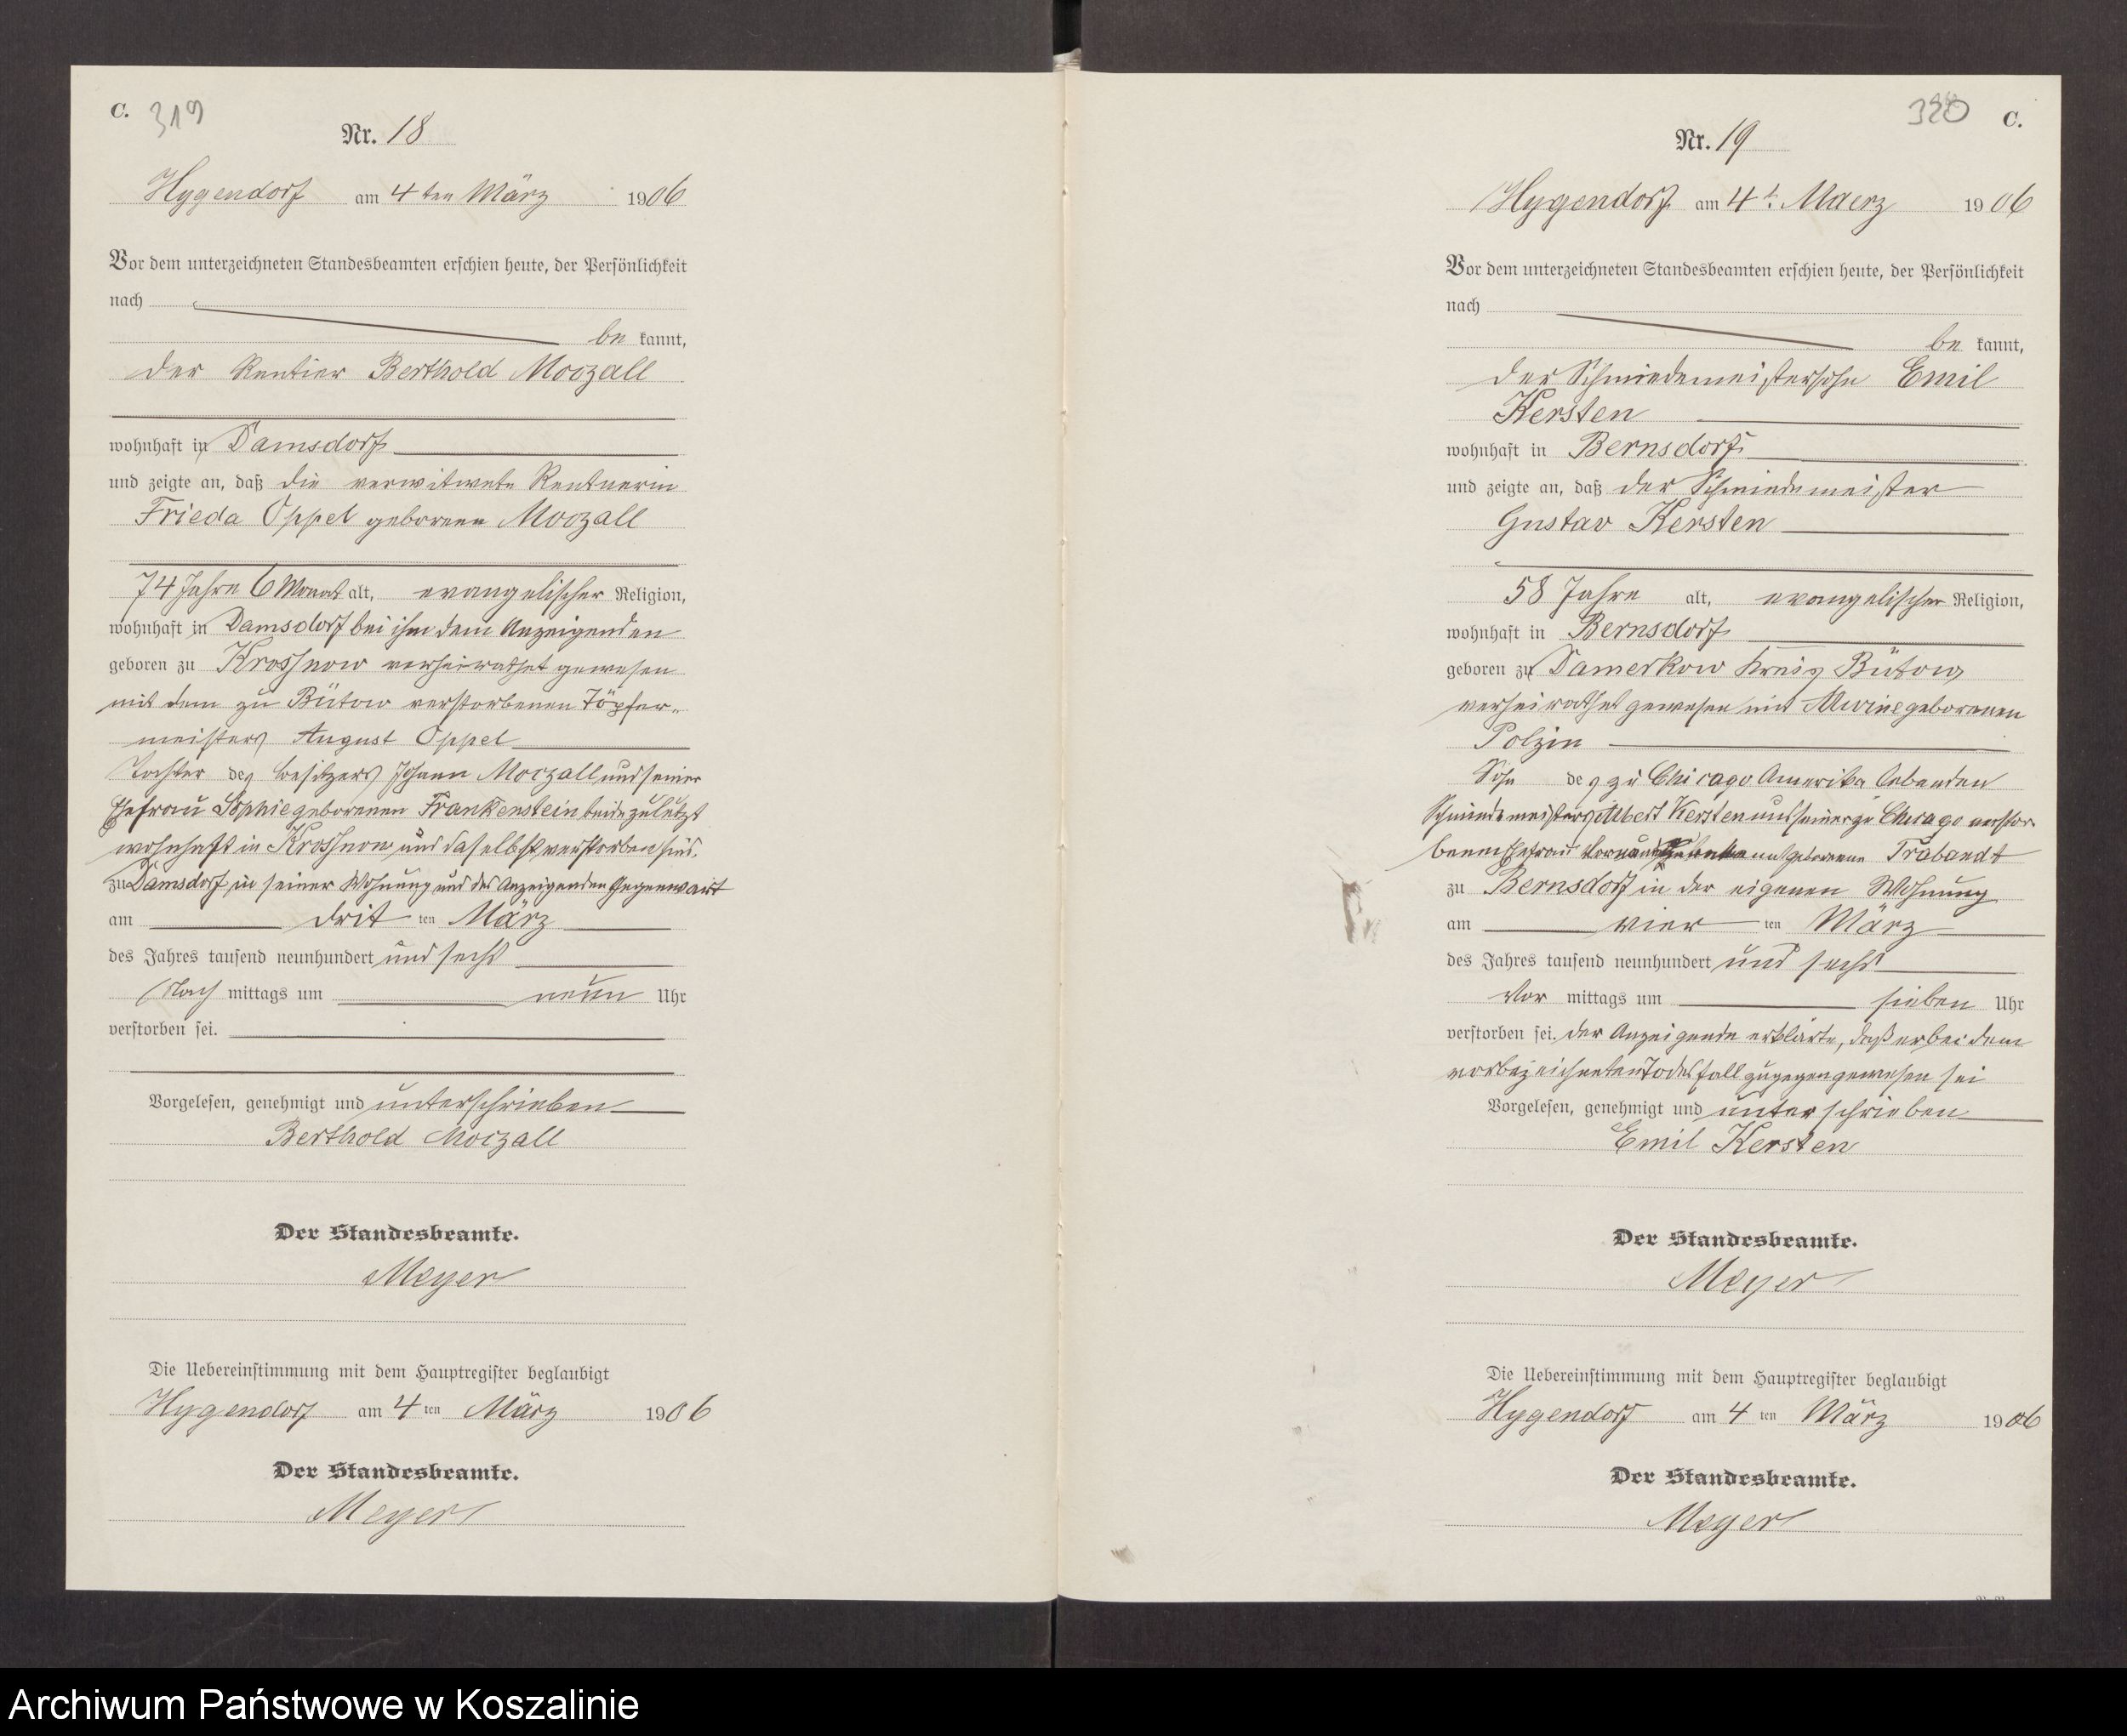 C. 319
Nr. 18
Hygendorf am 4ten März 1906
Vor dem unterzeichneten Standesbeamten erschien heute, der Persönlichkeit
nach
be kannt,
der Rentier Berthold Moczall
wohnhaft in Damsdorf
und zeigte an, daß die verwitwete Rentnerin
Frieda Oppel geborene Moczall
74 Jahre 6 Monat alt, evangelischer Religion,
wohnhaft in Damsdorf bei ihm dem Anzeigenden
geboren zu Krossnow verheirathet gewesen
mit dem zu Bütow verstorbenen Töpfer-
meisters August Oppel
Tochter des Besitzers Johann Moczall und seiner
Ehefrau Sophie geborenen Frankenstein beide zuletzt
wohnhaft in Krossnow und daselbst verstorben sind.
zu Damsdorf in seiner Wohnung und des Anzeigenden Gegenwart
am drit ten März
des Jahres tausend neunhundert und sechs
Nach mittags um neun Uhr
verstorben sei.
Vorgelesen, genehmigt und unterschrieben
Berthold Moczall
Der Standesbeamte.
Meyer
Die Uebereinstimmung mit dem Hauptregister beglaubigt
Hygendorf am 4 ten März 1906
Der Standesbeamte.
Meyer
320 C.
Nr. 19
Hygendorf am 4t. Maerz 1906
Vor dem unterzeichneten Standesbeamten erschien heute, der Persönlichkeit
nach
be kannt,
der Schmiedemeistersohn Emil
Kersten
wohnhaft in Bernsdorf
und zeigte an, daß der Schmiedemeister
Gustav Kersten
58 Jahre alt, evangelischer Religion,
wohnhaft in Bernsdorf
geboren zu Damerkow Kreis Bütow
verheirathet gewesen mit Alwine geborenen
Polzin
Sohn des zu Chicago Amerika lebenden
Schmiedemeisters Albert Kersten und seiner zu Chicago verstor-
benen Ehefrau geborene Trabandt
zu Bernsdorf in der eigenen Wohnung
am vier ten März
des Jahres tausend neunhundert und sechs
Vor mittags um sieben Uhr
verstorben sei. der Anzeigende erklärte, daß er bei dem
vorbezeichneten Todesfall zugegen gewesen sei
Vorgelesen, genehmigt und unterschrieben
Emil Kersten
Der Standesbeamte.
Meyer
Die Uebereinstimmung mit dem Hauptregister beglaubigt
Hygendorf am 4 ten März 1906
Der Standesbeamte.
Meyer
Archiwum Państwowe w Koszalinie